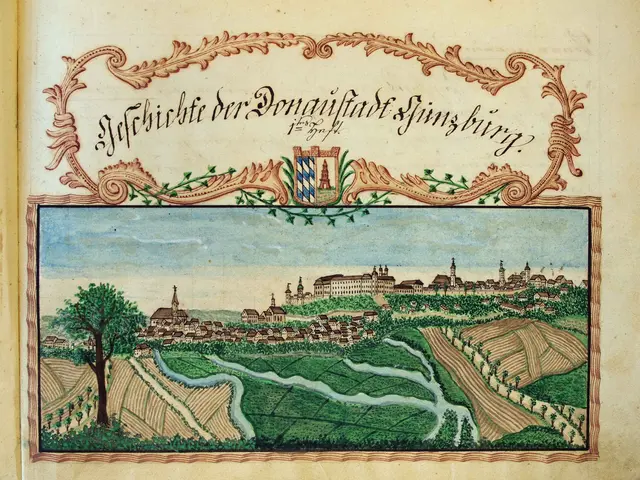 Geschichte der Donaustadt Günzburg.
1tes Heft.